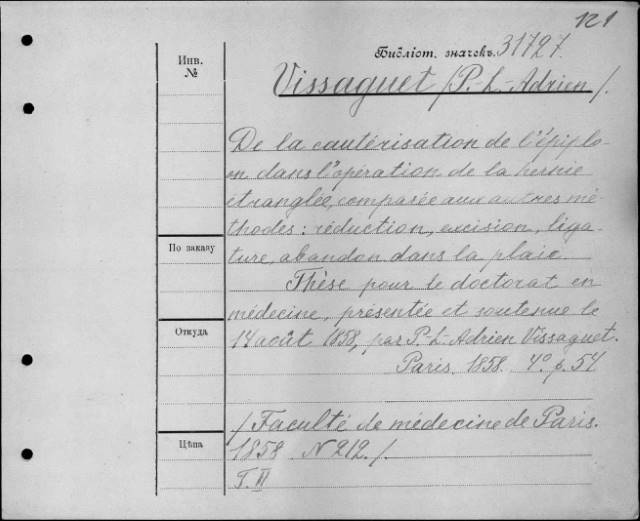 121
Библіот. значекъ. 31727.
Инв.
№
Vissaguet /P.-L.-Adrien/.
De la cautérisation de l'épiplo-
on dans l'opération de la hernie
étranglée, comparée aux autres mé-
thodes: réduction, excision, liga-
ture, abandon dans la plaie.
По заказу
Thèse pour le doctorat en
médecine, présentée et soutenue le
14 août 1858, par P.-L.-Adrien Vissaguet.
Откуда
Paris. 1858. 4º p. 54
/Faculté de médecine de Paris.
Цѣна
1858 N 212./.
T. II